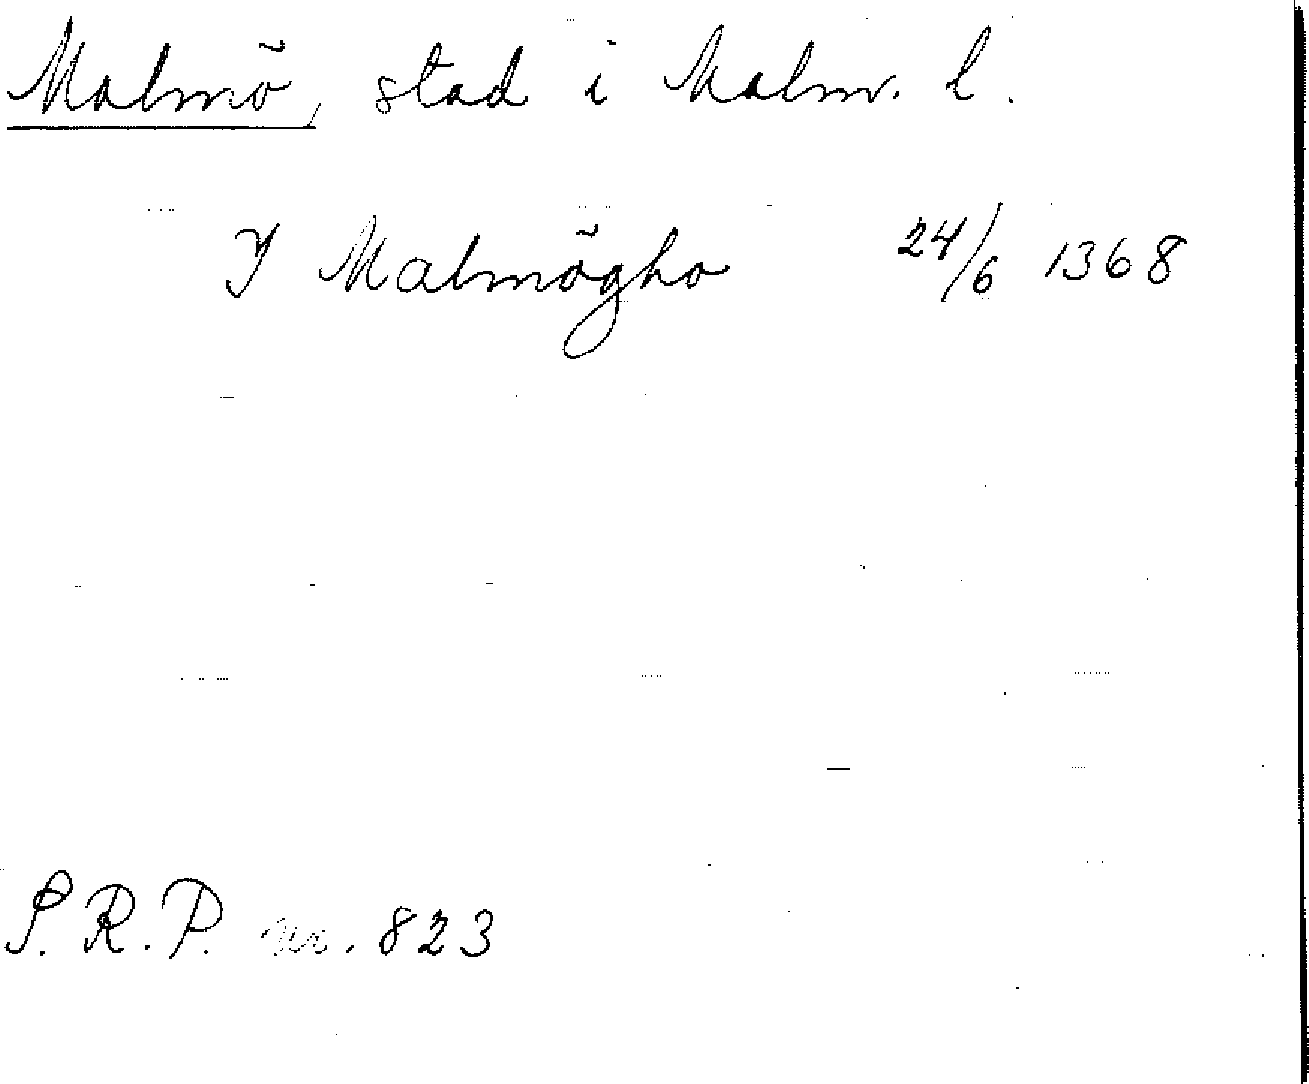 Malmö, stad i Malm. l.
I Malmögho 24/6 1368
S.R.P. nr. 823